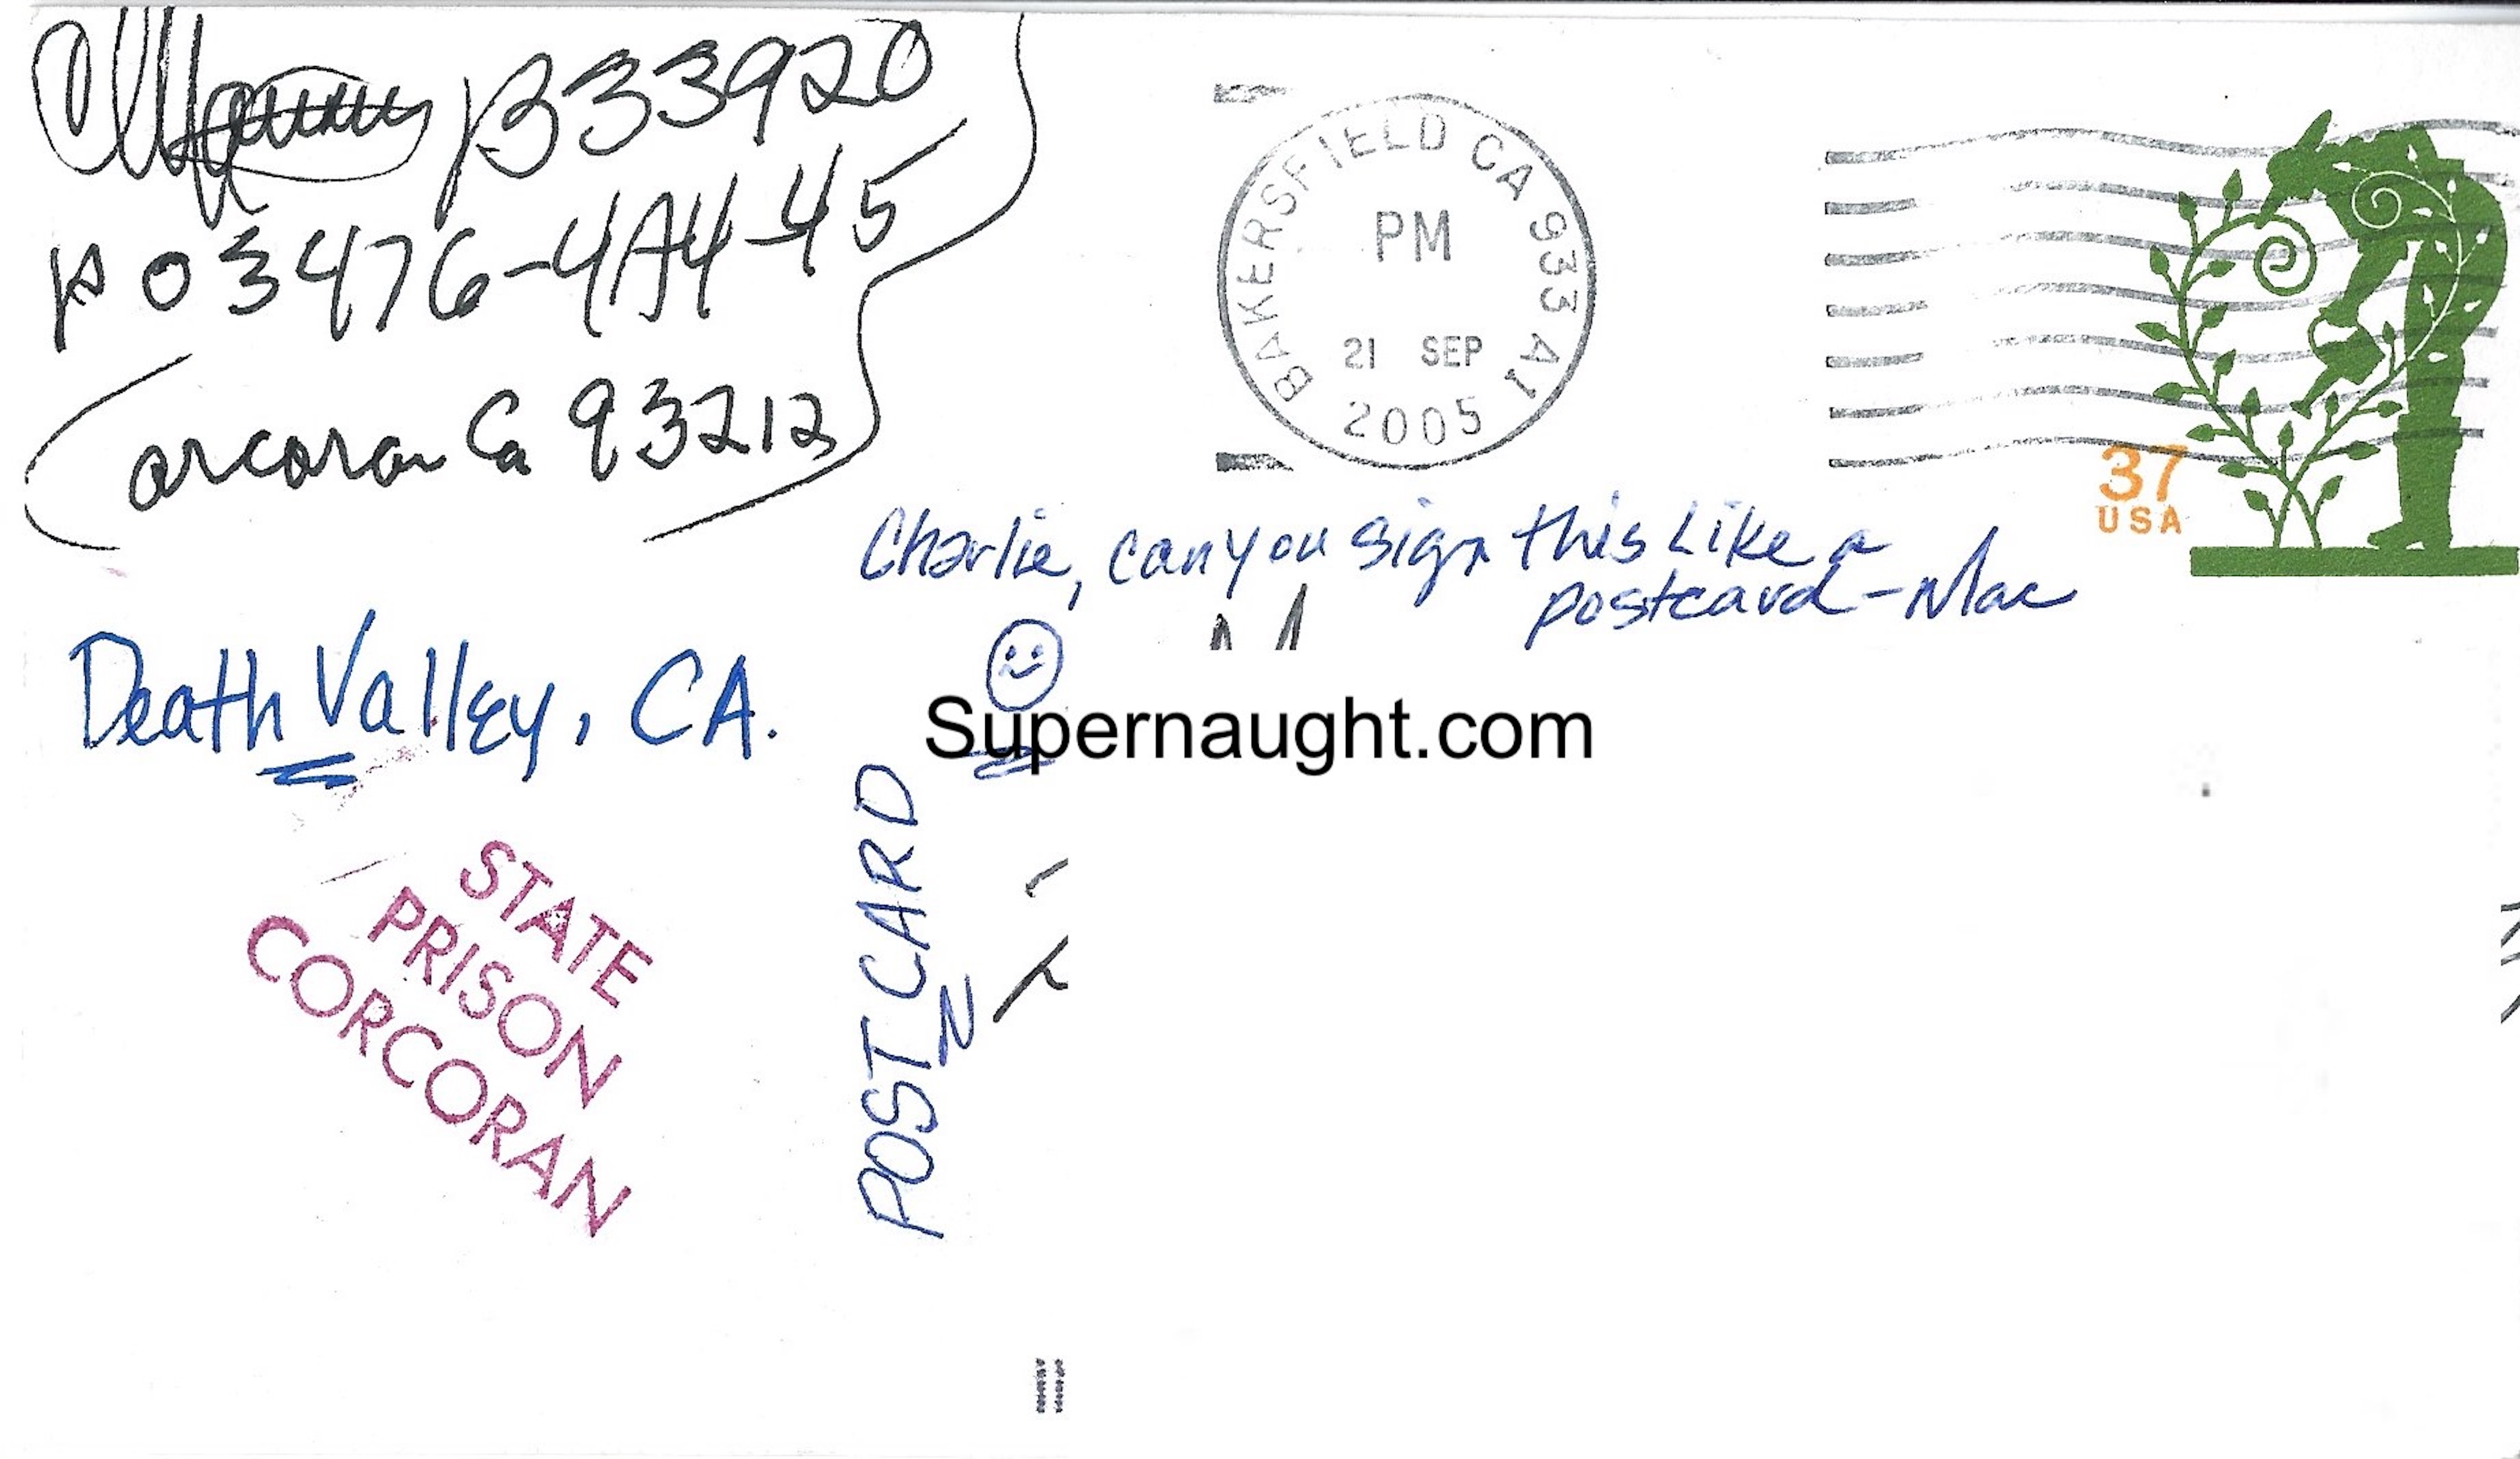 CManson B33920
PO 3476-4A4-45
Corcoran Ca 93212
BAKERSFIELD CA 933 A1
PM
21 SEP
2005
37
USA
Charlie, can you sign this Like a
postcard - Mac
Death Valley, CA.
Supernaught.com
POST CARD
STATE
PRISON
CORCORAN